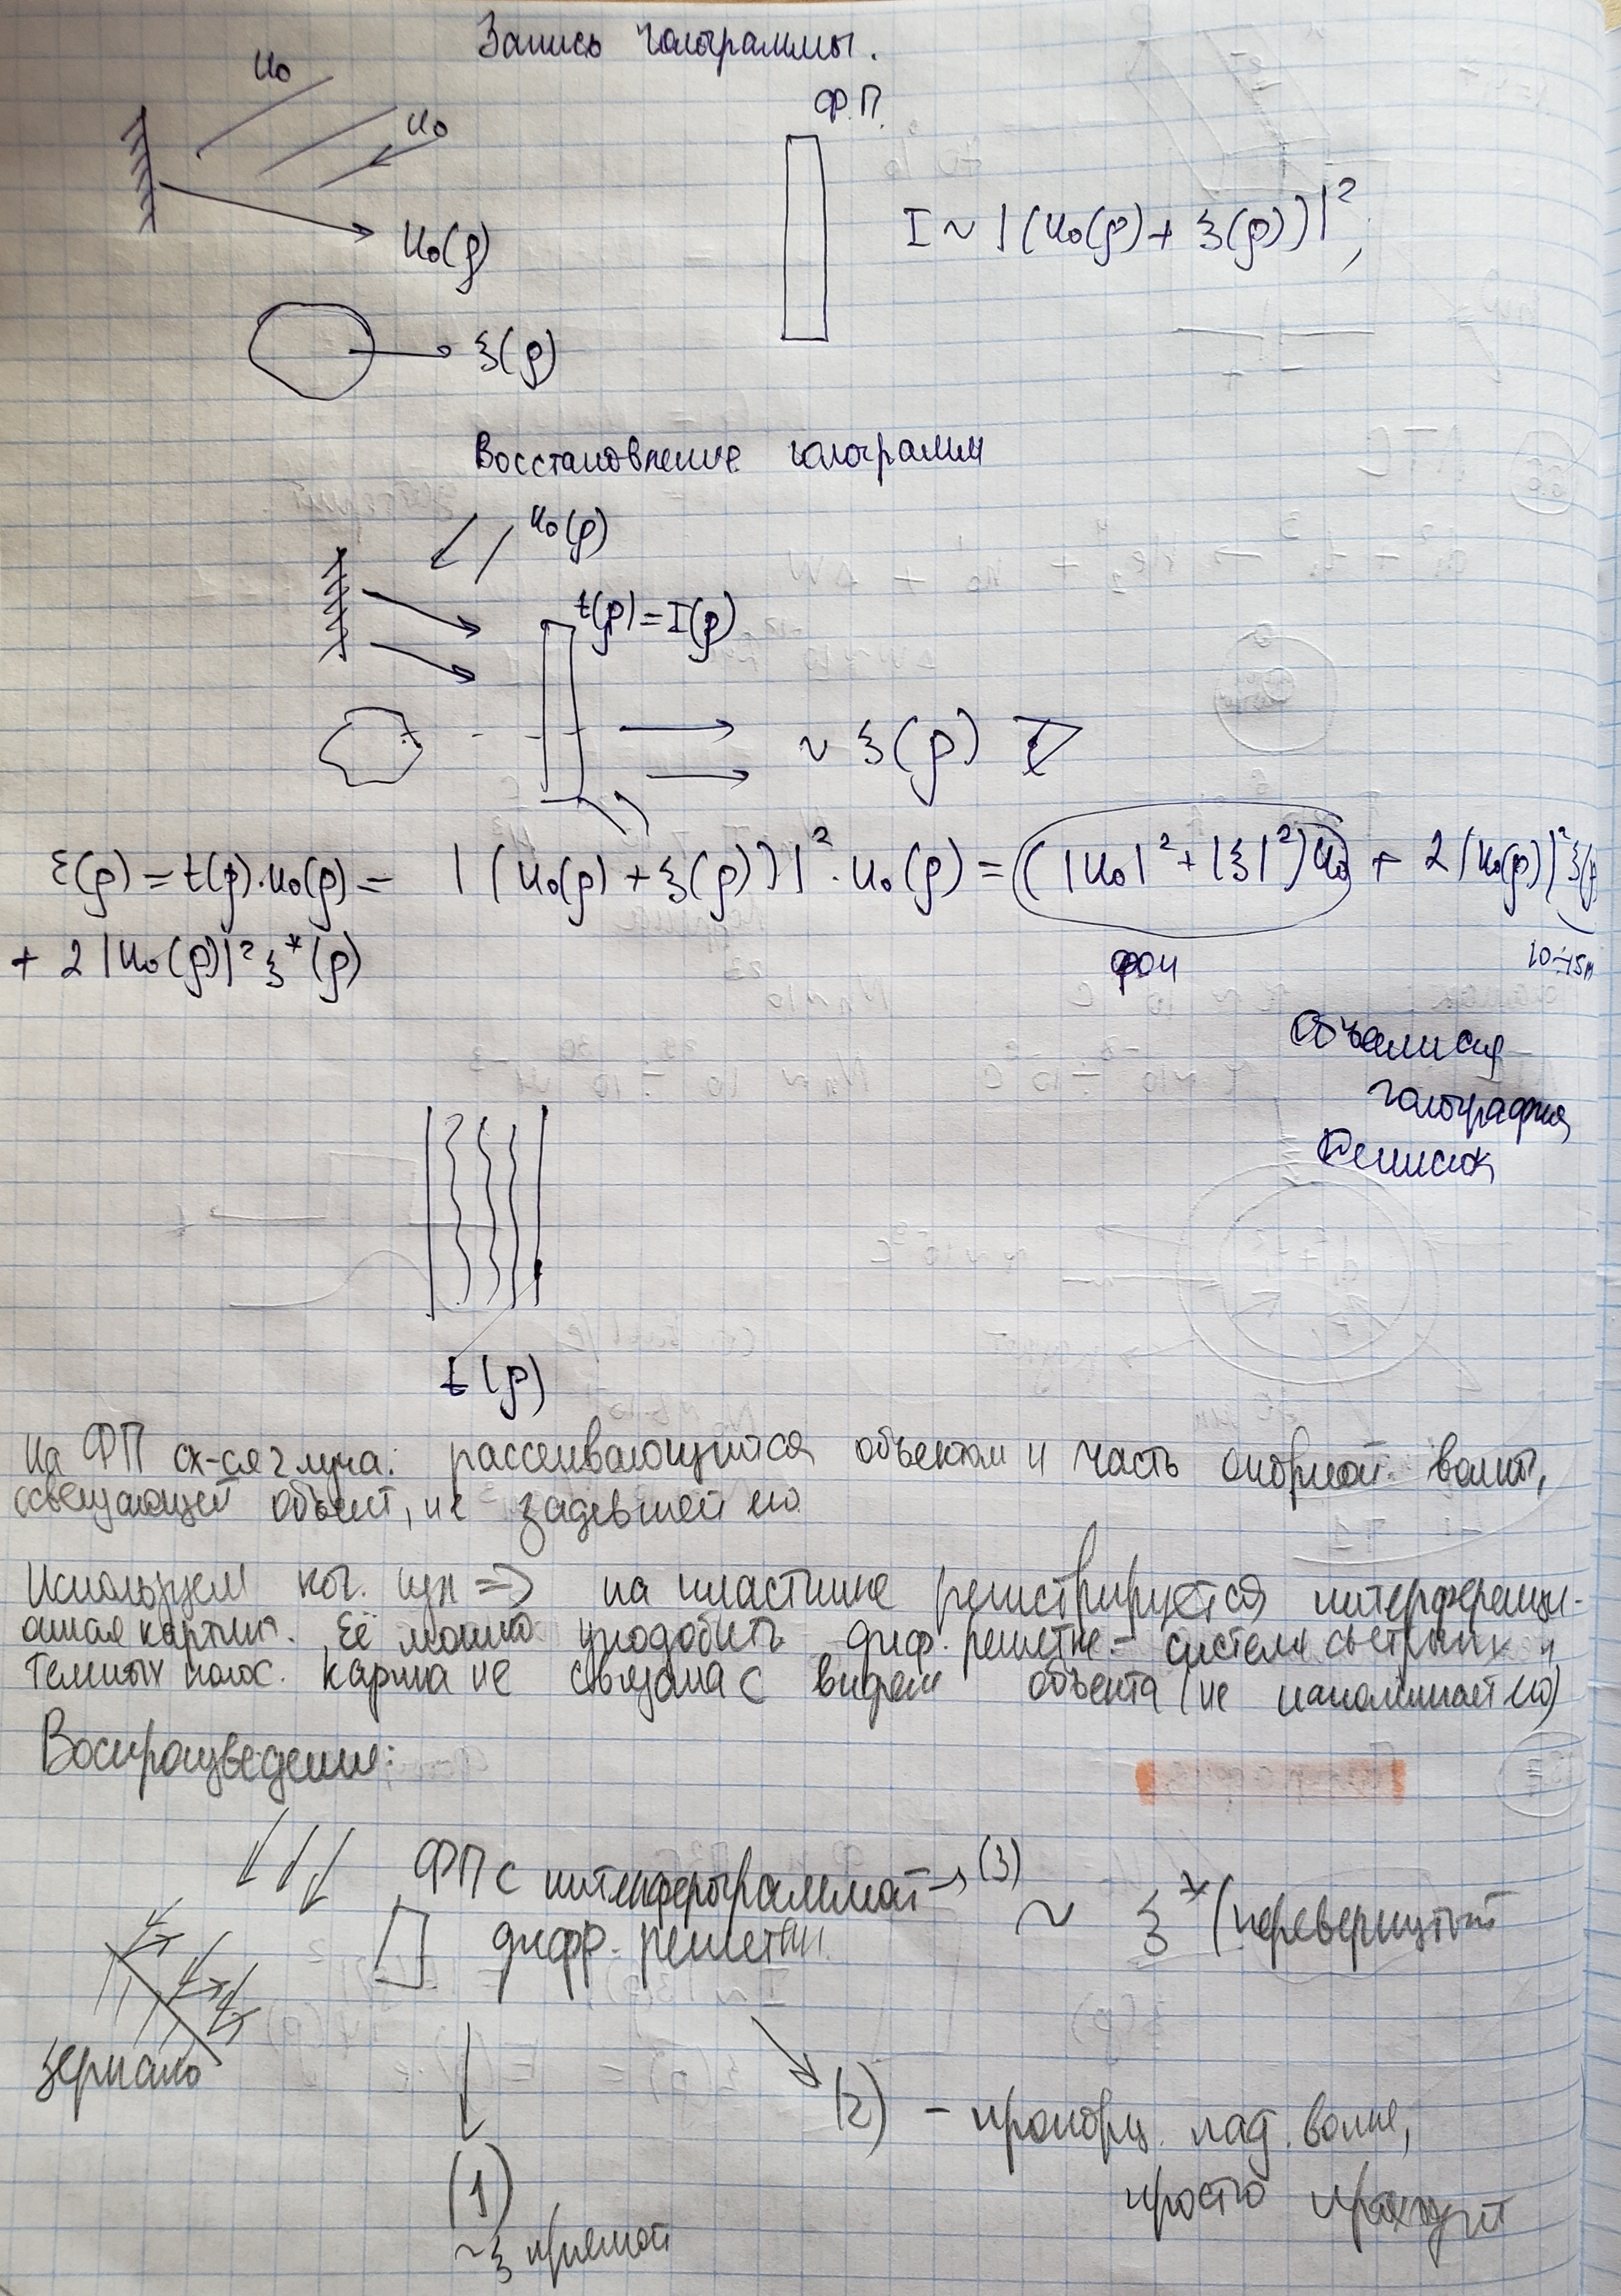 Запись голограммы.
u₀
u₀
Ф.П.
u₀(ρ)
I ~ |(u₀(ρ) + ξ(ρ))|²,
ξ(ρ)
Восстановление голограмм
u₀(ρ)
t(ρ) = I(ρ)
~ ξ(ρ)
ε(ρ) = t(ρ)·u₀(ρ) = |(u₀(ρ) + ξ(ρ))|²·u₀(ρ) = (|u₀|² + |ξ|²)u₀ + 2|u₀(ρ)|²ξ(ρ)
+ 2|u₀(ρ)|²ξ*(ρ)
фон
10÷15
Объемная
голография
Денисюк
t(ρ)
На ФП сх-ся 2 луча: рассеивающийся объектом и часть опорной волны,
освещающей объект, не задевшей его
Используем ког. изл => на пластинке регистрируется интерференци-
онная картина. Её можно уподобить диф. решетке - система светлых и
темных полос. Карина не связана с видом объекта (не напоминает его)
Воспроизведение:
ФП с интерферограммой → (3)
дифр. решетки.
~ ξ* (перевернутый
зеркало
(2) - пропорц. пад. волне,
просто проходит
(1)
~ξ прямой